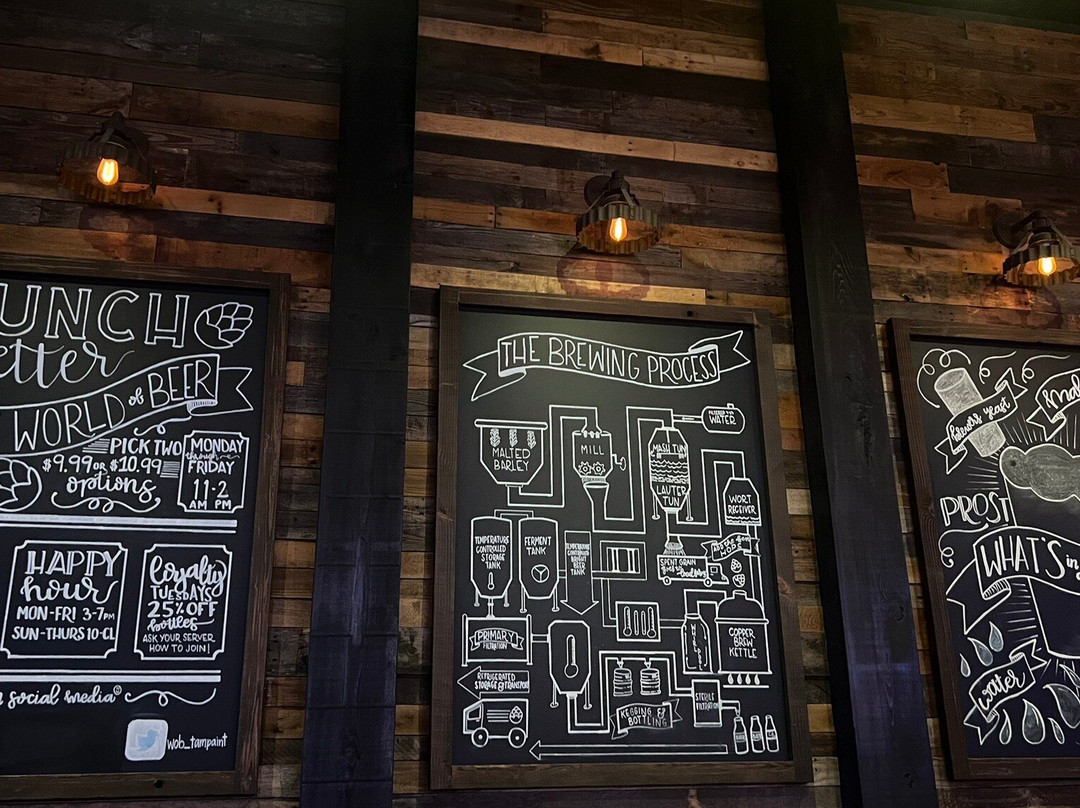 UNCH
etter
WORLD of BEER
PICK TWO
$9.99 or $10.99
options
MONDAY
through
FRIDAY
11-2
AM PM
HAPPY
hour
MON-FRI 3-7PM
SUN-THURS 10-CL
loyalty
TUESDAYS
25% OFF
bottles
ASK YOUR SERVER
HOW TO JOIN!
social media
wob_tampaint
THE BREWING PROCESS
MALTED
BARLEY
MILL
MASH TUN
LAUTER
TUN
FILTERED
WATER
WORT
RECEIVER
TEMPERATURE
CONTROLLED
STORAGE
TANK
FERMENT
TANK
TEMPERATURE
CONTROLLED
BRIGHT
BEER
TANK
SPENT GRAIN
COPPER
BREW
KETTLE
PRIMARY
FILTRATION
REFRIGERATED
STORAGE & TRANSPORT
KEGGING &
BOTTLING
STERILE
FILTRATION
brewers yeast
PROST
WHAT'S in
water